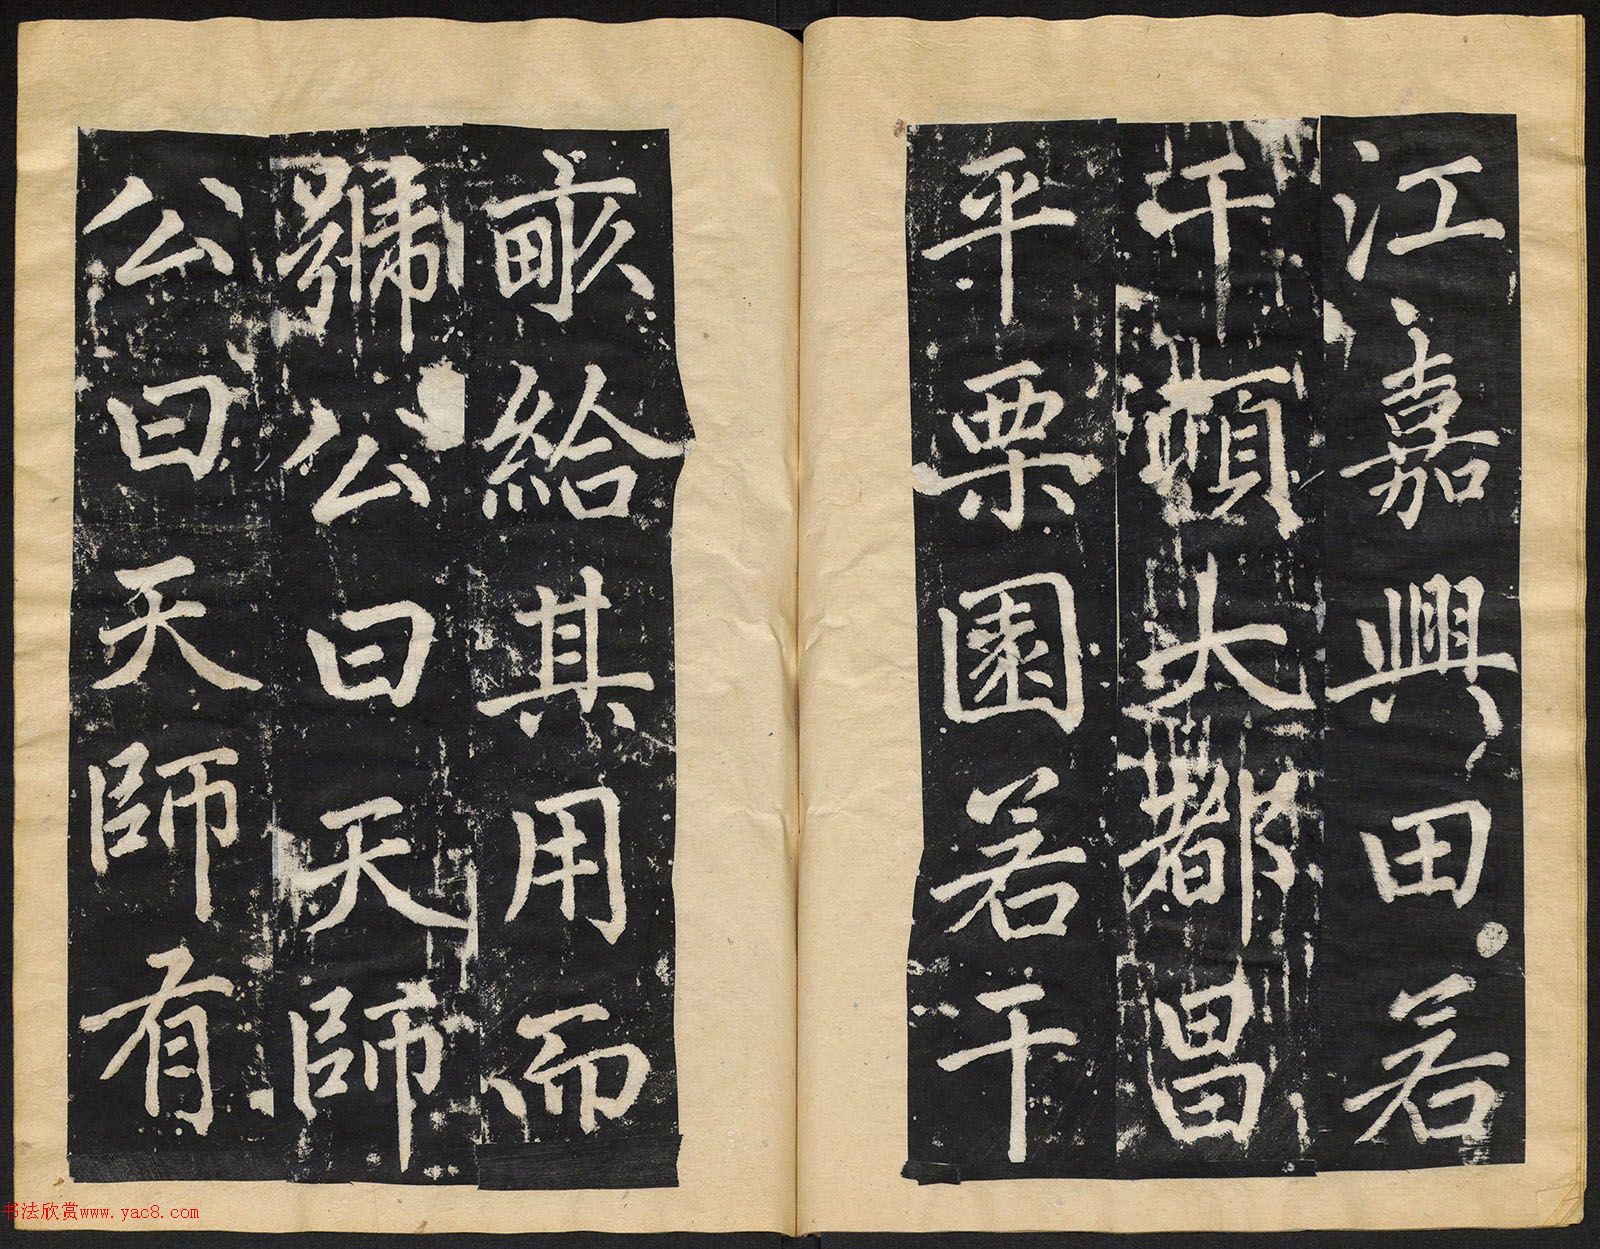 江嘉興田若
干頃大都昌
平栗園若干
畝給其用而
號公曰天師
公曰天師有
书法欣赏www.yac8.com